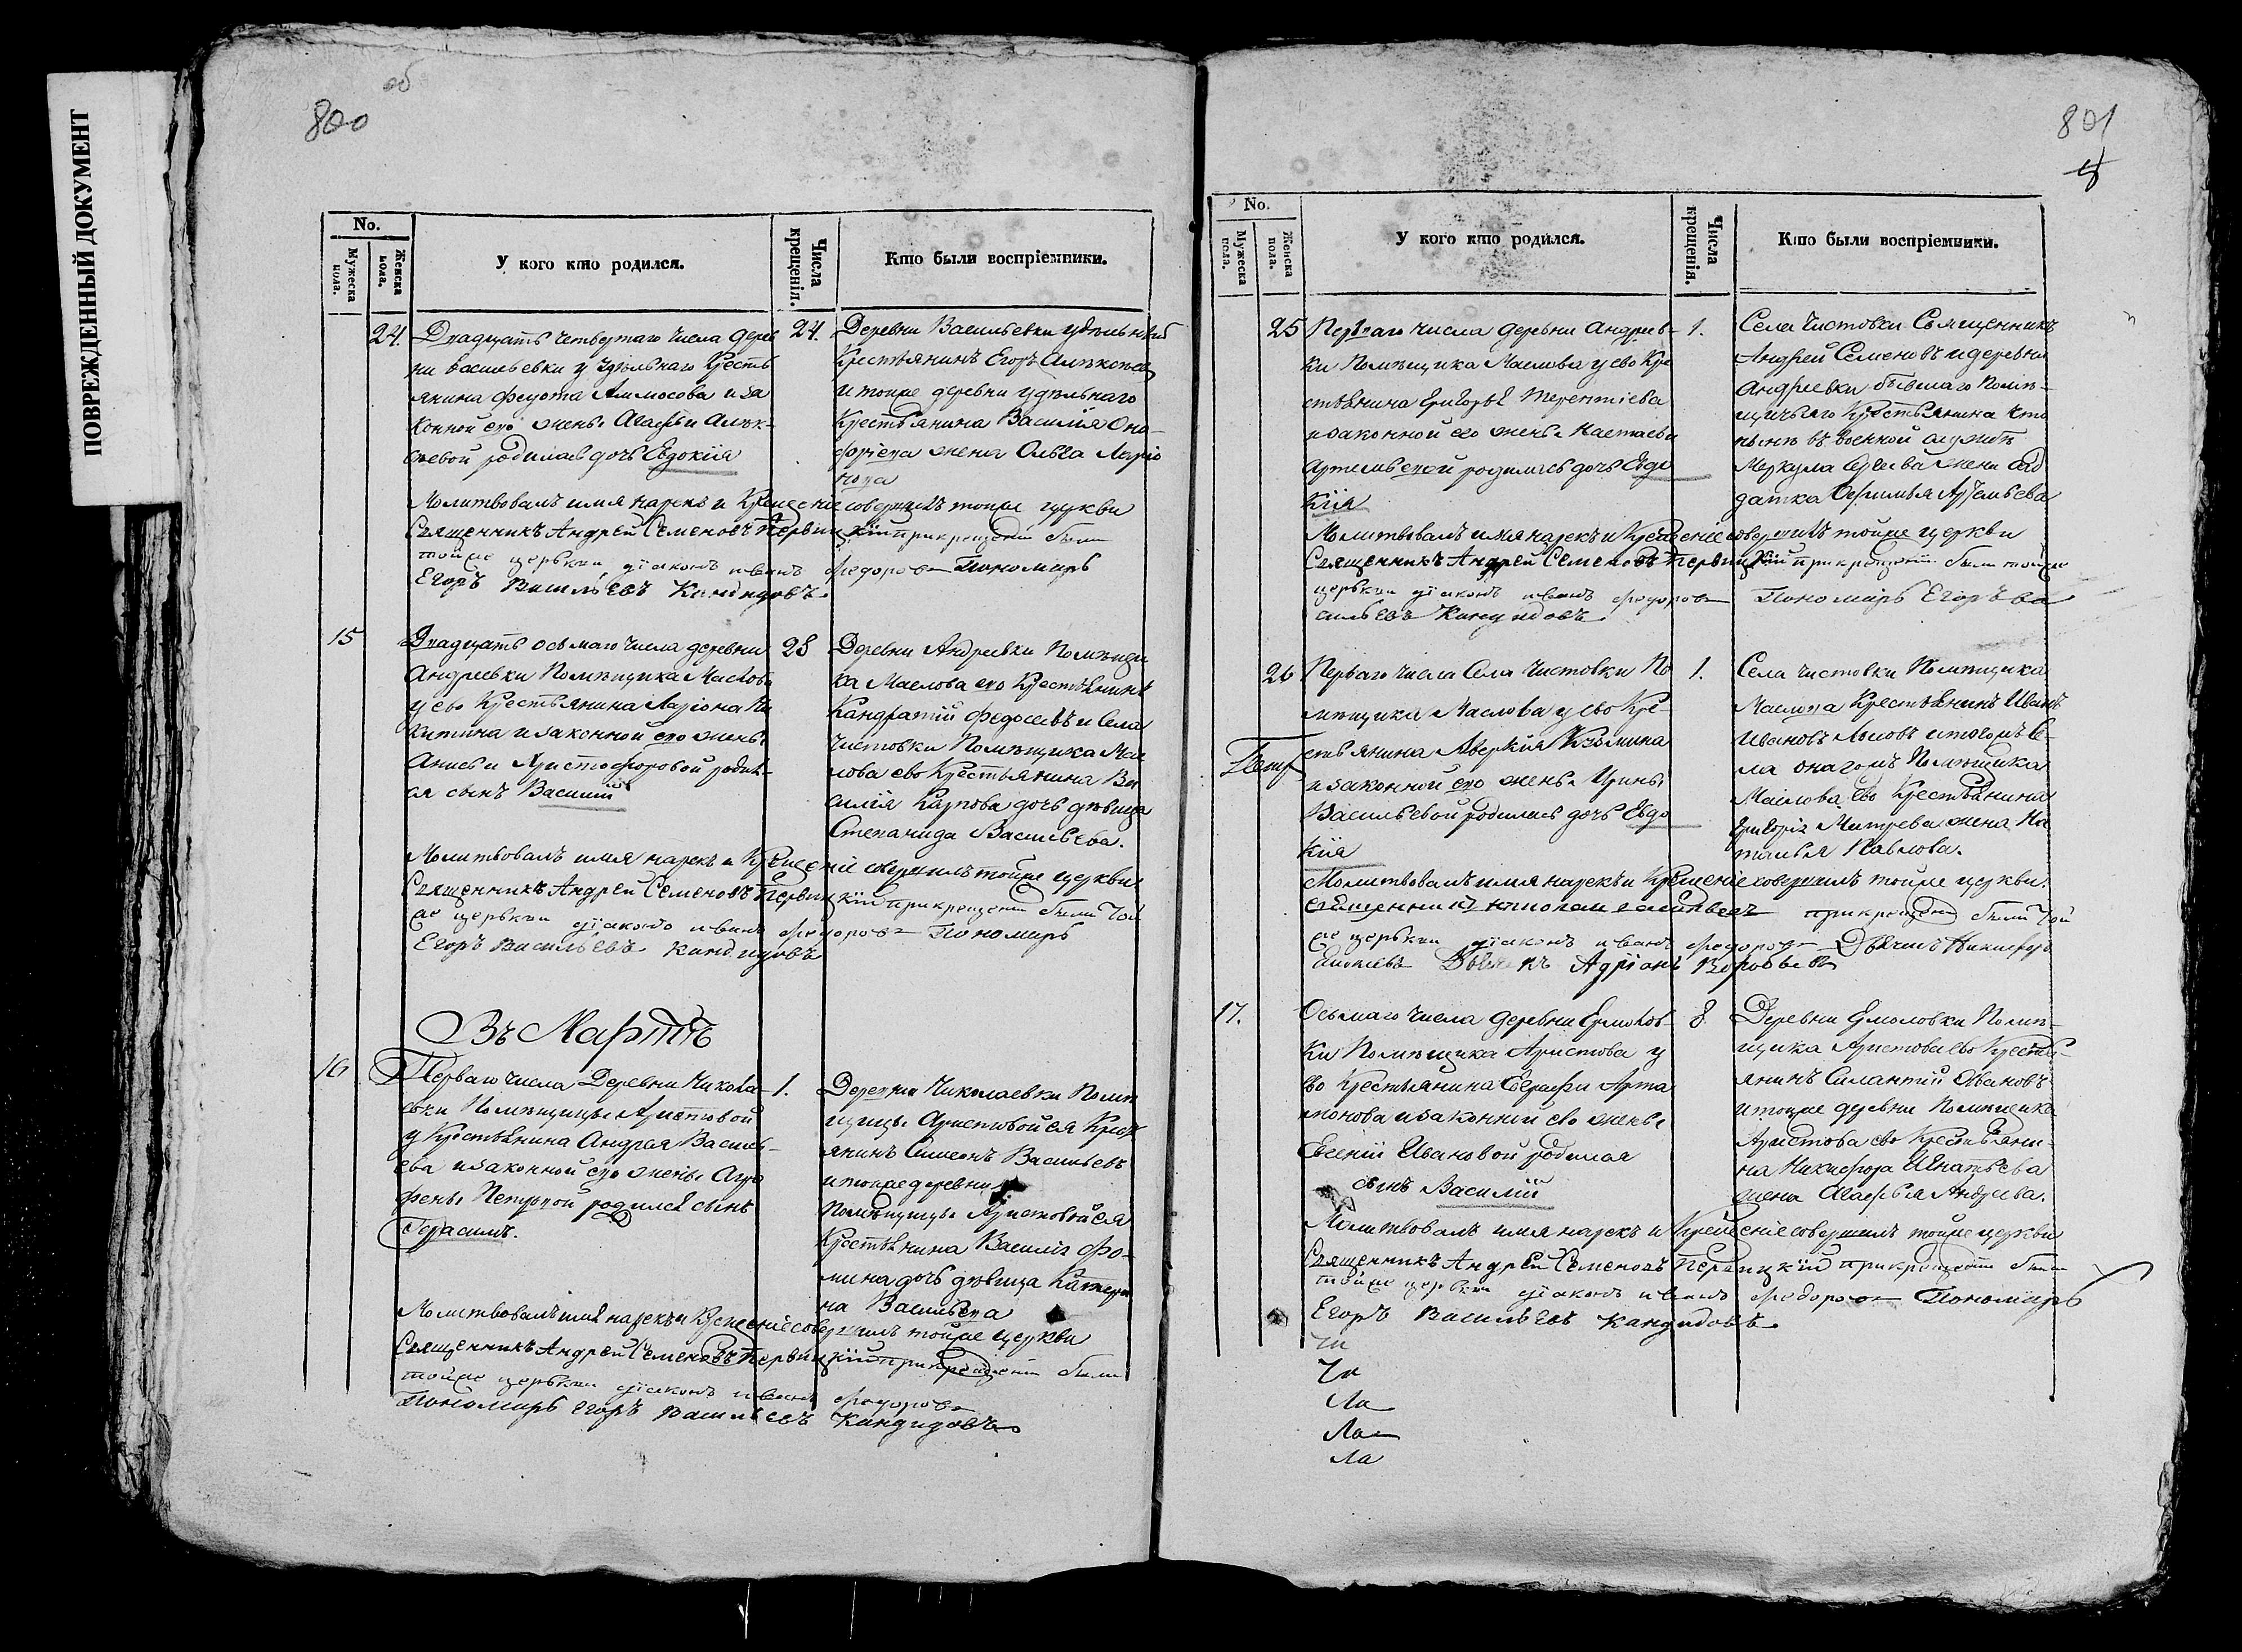 ПОВРЕЖДЕННЫЙ ДОКУМЕНТ
об
800
No.
Мужеска пола.
Женска пола.
У кого кто родился.
Числа крещенія.
Кто были воспріемники.
24.
Двадцать четвертаго числа дерев
ни васильевки у удѣльнаго Кресть
янина федота Аммосова и за
конной его жены Агафьи Алек-
сѣевой родилась дочь Евдокія
24.
Деревни Васильевки удѣльный
Крестьянинъ Егоръ
и тойже деревни удѣльнаго
Крестьянина Василія Оно-
фріева жена Ольга Ларіо
нова
Молитвовалъ имя нарекъ и Крещеніе совершилъ тойже церкви
Священникъ Андрей Семеновъ Первицкій при крещеніи были
тойже церькви діаконъ иванъ федоровъ Пономарь
Егоръ Васильевъ Кандидовъ
15
Двадцать осьмаго числа деревни
Андреевки Помѣщика Маслова
у ево Крестьянина Ларіона Ни
китина и законной его жены
Анисьи Христофоровой родил-
ся сынъ Василій
28
Деревни Андреевки Помѣщи
ка Маслова его Крестьянинъ
Кандратій Федосеевъ и Села
Чистовки Помѣщика Мас
лова ево Крестьянина Ва
силія Карпова дочь дѣвица
Степанида Васильева.
Молитвовалъ имя нарекъ и Крещеніе совершилъ тойже церкви
Священникъ Андрей Семеновъ Первицкій при крещеніи были той
же церькви діаконъ иванъ федоровъ Пономарь
Егоръ Васильевъ Кандидовъ
Въ Мартѣ
16
Перваго числа Деревни Никола-
евки Помѣщицы Аристовой
у Крестьянина Андрея Василь-
ева и законной его жены Агра
фены Петровой родился сынъ
Герасимъ.
1.
Деревни Николаевки Помѣ
щицы Аристовой ея Крест
янинъ Симеонъ Васильевъ
и тойже деревни
Помѣщицы Аристовой ея
Крестьянина Василія Фо-
мина дочь дѣвица Катери
на Васильева
Молитвовалъ имя нарекъ и Крещеніе совершилъ тойже церкви
Священникъ Андрей Семеновъ Первицкій при крещеніи были
тойже церькви діаконъ иванъ федоровъ
Пономарь Егоръ Васильевъ Кандидовъ
801
No.
Мужеска пола.
Женска пола.
У кого кто родился.
Числа крещенія.
Кто были воспріемники.
25
Перваго числа деревни Андреев-
ки Помѣщика Маслова у ево Кре
стьянина Григорья Терентіева
и законной его жены Настасьи
Артемьевой родилась дочь Евдо
кія
1.
Села Чистовки Священникъ
Андрей Семеновъ и деревни
Андреевки бывшаго Помѣ-
щичьяго Крестьянина что
нынѣ въ военной службѣ
Меркула жена сол
датка Артемьева
Молитвовалъ имя нарекъ и Крещеніе совершилъ тойже церкви
Священникъ Андрей Семеновъ Первицкій при крещеніи были тойже
церькви діаконъ иванъ федоровъ Пономарь Егоръ Ва
сильевъ Кандидовъ
26
Перваго числа Села Чистовки По
мѣщика Маслова у ево Кре-
стьянина Аверкія Козьмина
и законной его жены Ирины
Васильевой родилась дочь Евдо
кія
1.
Села Чистовки Помѣщика
Маслова Крестьянинъ Иванъ
Ивановъ и тогожъ Се-
ла онагожъ Помѣщика
Маслова ево Крестьянина
Григорія Митрева жена На
талья Павлова.
Молитвовалъ имя нарекъ и Крещеніе совершилъ тойже церкви
священникъ при крещеніи были той
же церькви діаконъ иванъ федоровъ Дьячекъ Никифоръ
Дьячекъ Адріанъ
17.
Осьмаго числа деревни Ермолов-
ки Помѣщика Аристова у
ево Крестьянина Еграфа Арта
монова и законной ево жены
Евгеніи Ивановой родился
сынъ Василій
8
Деревни Ермоловки Помѣ-
щика Аристова ево Кресть-
янинъ Силантій Ивановъ
и тойже деревни Помѣщика
Аристова ево Крестьяни-
на Никифора Игнатьева
жена Агафья Андреева.
Молитвовалъ имя нарекъ и Крещеніе совершилъ тойже церкви
Священникъ Андрей Семеновъ Первицкій при крещеніи были
тойже церькви діаконъ иванъ федоровъ Пономарь
Егоръ Васильевъ Кандидовъ
Ла
Ла
Ла